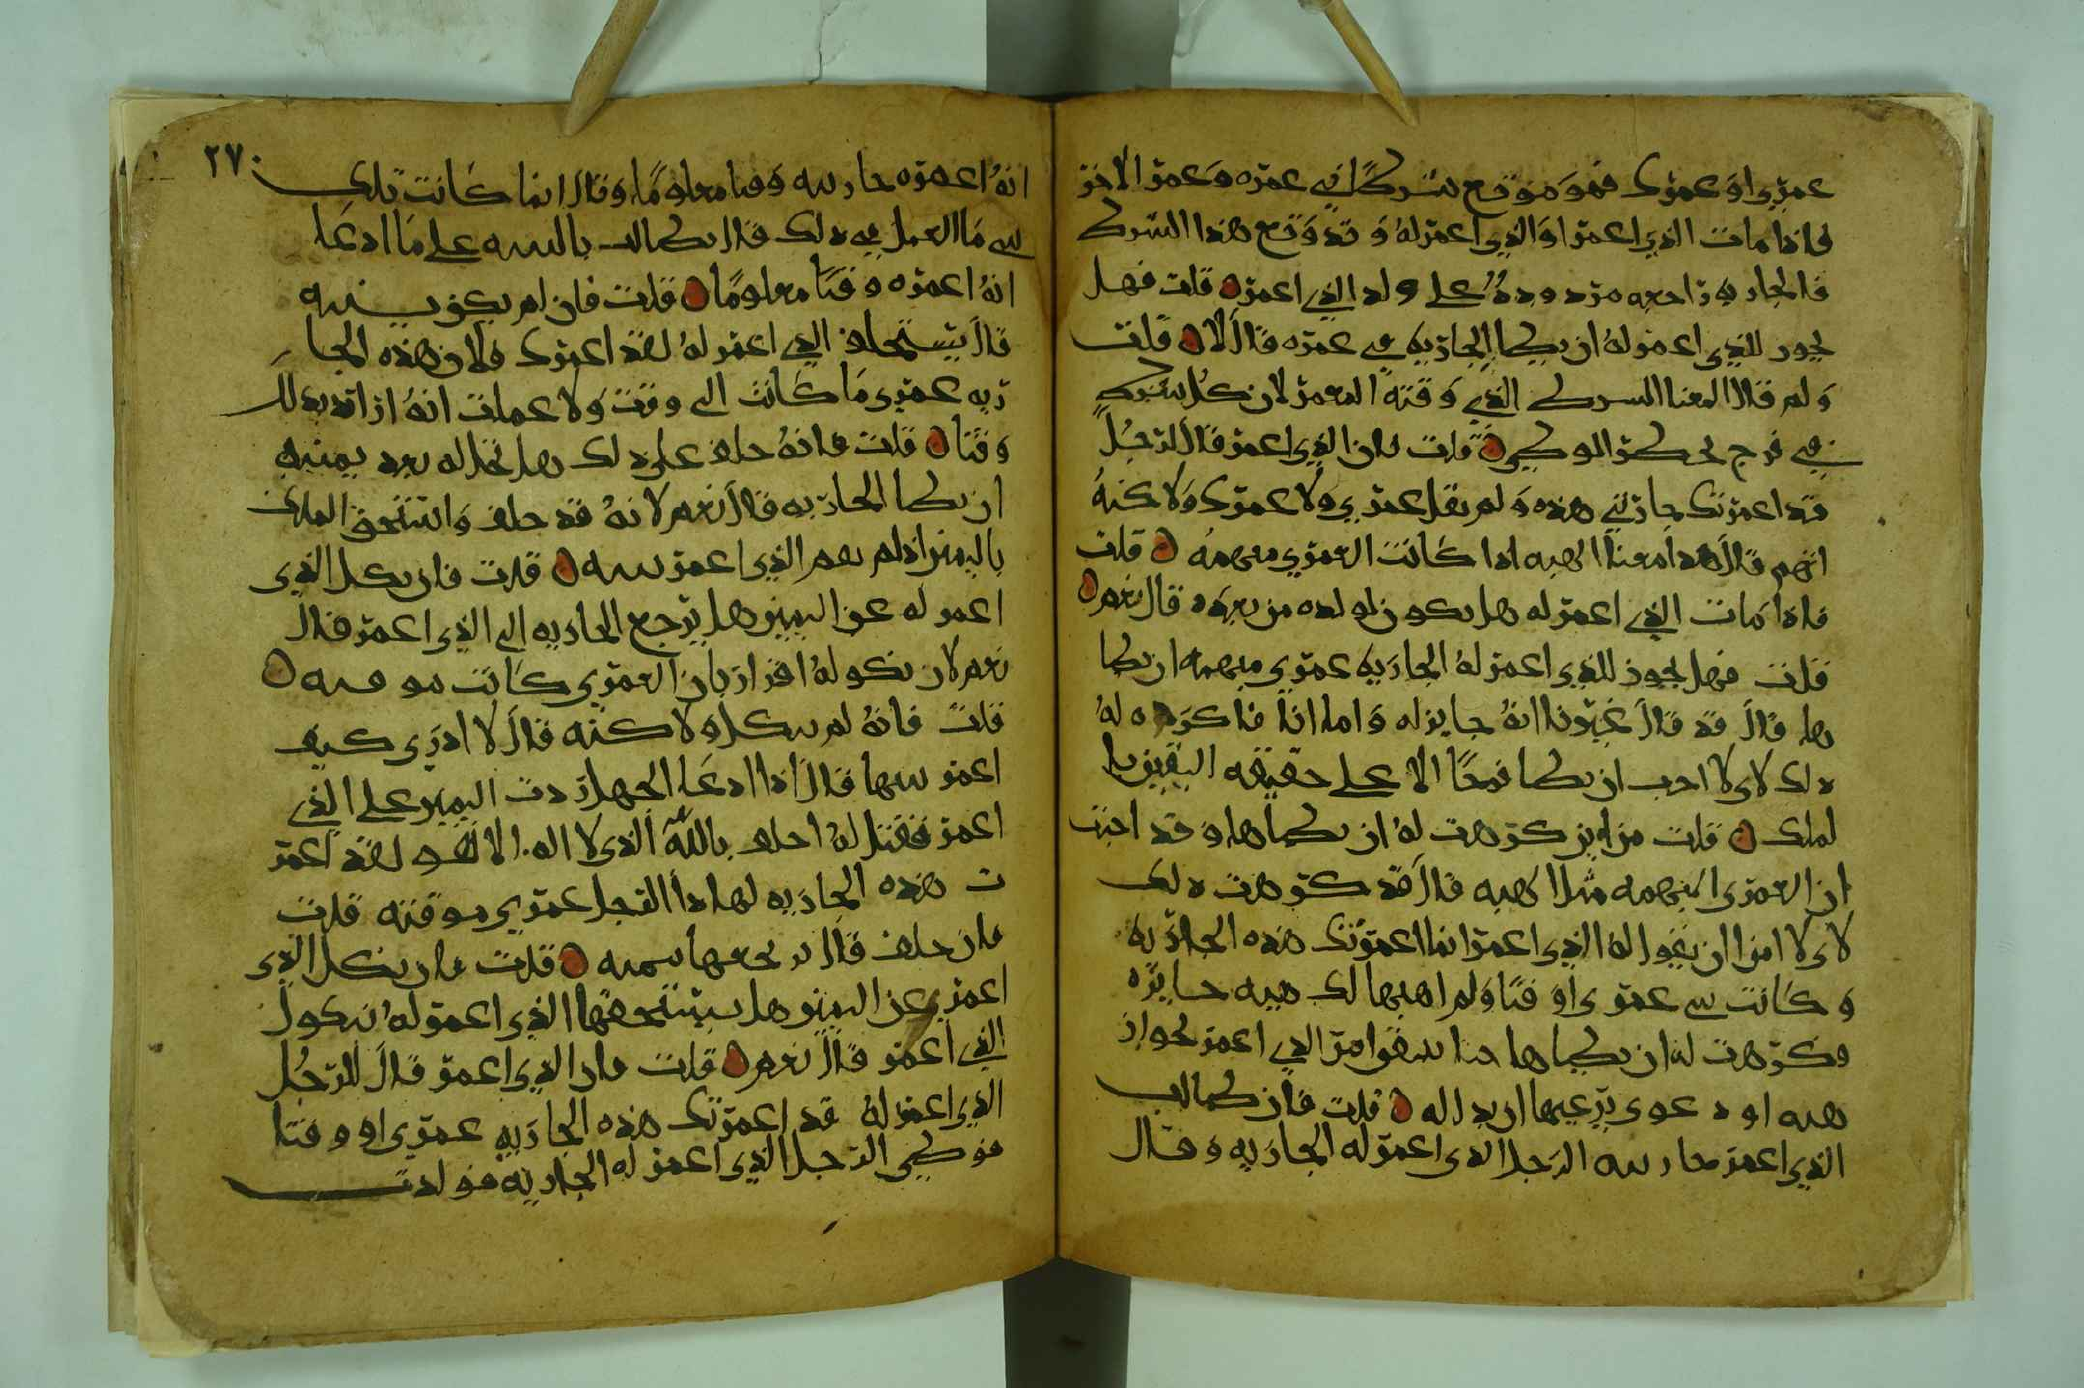 عمري او عمرك فهو موقع شركا في عمره وعمر الاخر
فاذا مات الذي اعمر او الذي اعمر له وقد وقع هذا الشرك
فالجاريه راجعه مردوده على ولد الذي اعمر قلت فهل
يجوز للذي اعمر له ان يطا الجاريه في عمره قال لا قلت
ولم قال لمعنا الشرك الذي وقته المعمر لان كل شرك
في فرج يحرم الوطي قلت فان الذي اعمر قال لرجل
قد اعمرتك جاريتي هذه ولم يقل عمري ولا عمرك ولاكنه
ابهم قال هذا معنا الهبه اذا كانت العمري مبهمه قلت
فاذا مات الذي اعمر له هل يكون لولده من بعده قال نعم
قلت فهل يجوز للذي اعمر له الجاريه عمري مبهمه ان يطا
بها قال قد قال غيرنا انه جايز له واما انا فاكره له
ذلك لاني لا احب ان يطا فرجا الا على حقيقه اليقين بالملك
قلت من اين كرهت له ان يطاها وقد اجزت
ان العمري المبهمه مثل الهبه قال قد كرهت ذلك
لاني لا امن ان يقول له الذي اعمر انما اعمرتك هذه الجاريه
وكانت نيتي عمري او وقتا ولم اهبها لك هبه جايزه
وكرهت له ان يطاها حتا يستقر امر الذي اعمر لجواز
هبه او دعوى يدعيها اريد اله قلت فان طالب
الذي اعمر بجاريته الرجل الذي اعمر له الجاريه وقال
٢٧٠
انه اعمره جاريته وقتا معلوما وقال انما كانت تلك
نيتي ما العمل في ذلك قال يطالب بالبينه على ما ادعا
انه اعمره وقتا معلوما قلت فان لم يكن بينه
قال يستحلف الذي اعمر له لقد اعمرك فلان هذه الجا
ريه عمري ما كانت الى وقت ولا علمت انه اراد بذلك
وقتا قلت فانه حلف على ذلك هل يحل له بعد يمينه
ان يطا الجاريه قال نعم لانه قد حلف واستحق الملك
باليمين اذ لم يقم الذي اعمر بينه قلت فان نكل الذي
اعمر له عن اليمين هل يرجع الجاريه الى الذي اعمر قال
نعم لان نكوله اقرار بان العمري كانت موقته
قلت فانه لم ينكل ولاكنه قال لا ادري كيف
اعمرنيها قال اذا ادعا الجهل ردت اليمين على الذي
اعمر فقيل له احلف بالله الذي لا اله الا هو لقد اعمر
ت هذه الجاريه لهاذا الرجل عمري موقته قلت
فان حلف قال يرتجعها بيمينه قلت فان نكل الذي
اعمر عن اليمين هل يستحقها الذي اعمر له بنكول
الذي اعمر قال نعم قلت فان الذي اعمر قال للرجل
الذي اعمر له قد اعمرتك هذه الجاريه عمري او وقتا
فوطي الرجل الذي اعمر له الجاريه فولدت